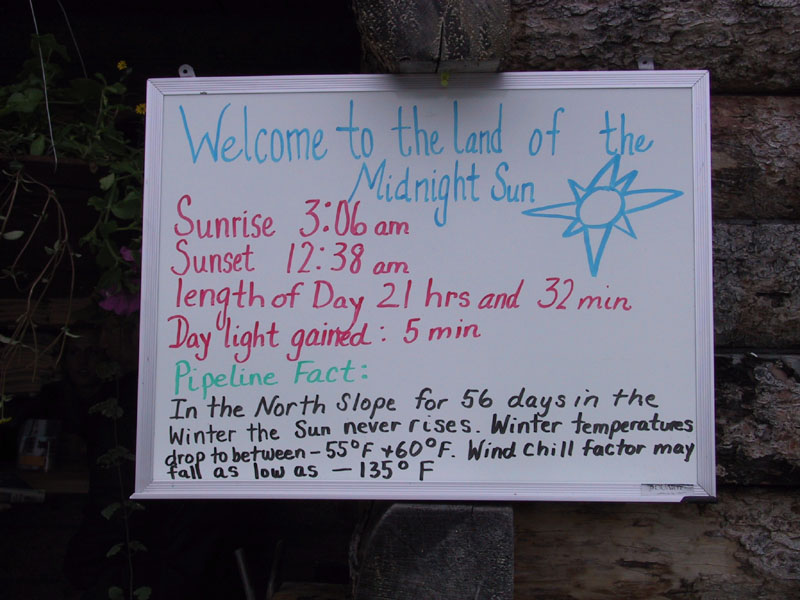 Welcome to the land of the
Midnight Sun
Sunrise 3:06 am
Sunset 12:38 am
length of Day 21 hrs and 32 min
Day light gained: 5 min
Pipeline Fact:
In the North Slope for 56 days in the
Winter the Sun never rises. Winter temperatures
drop to between -55°F +60°F. Wind Chill factor may
fall as low as -135° F